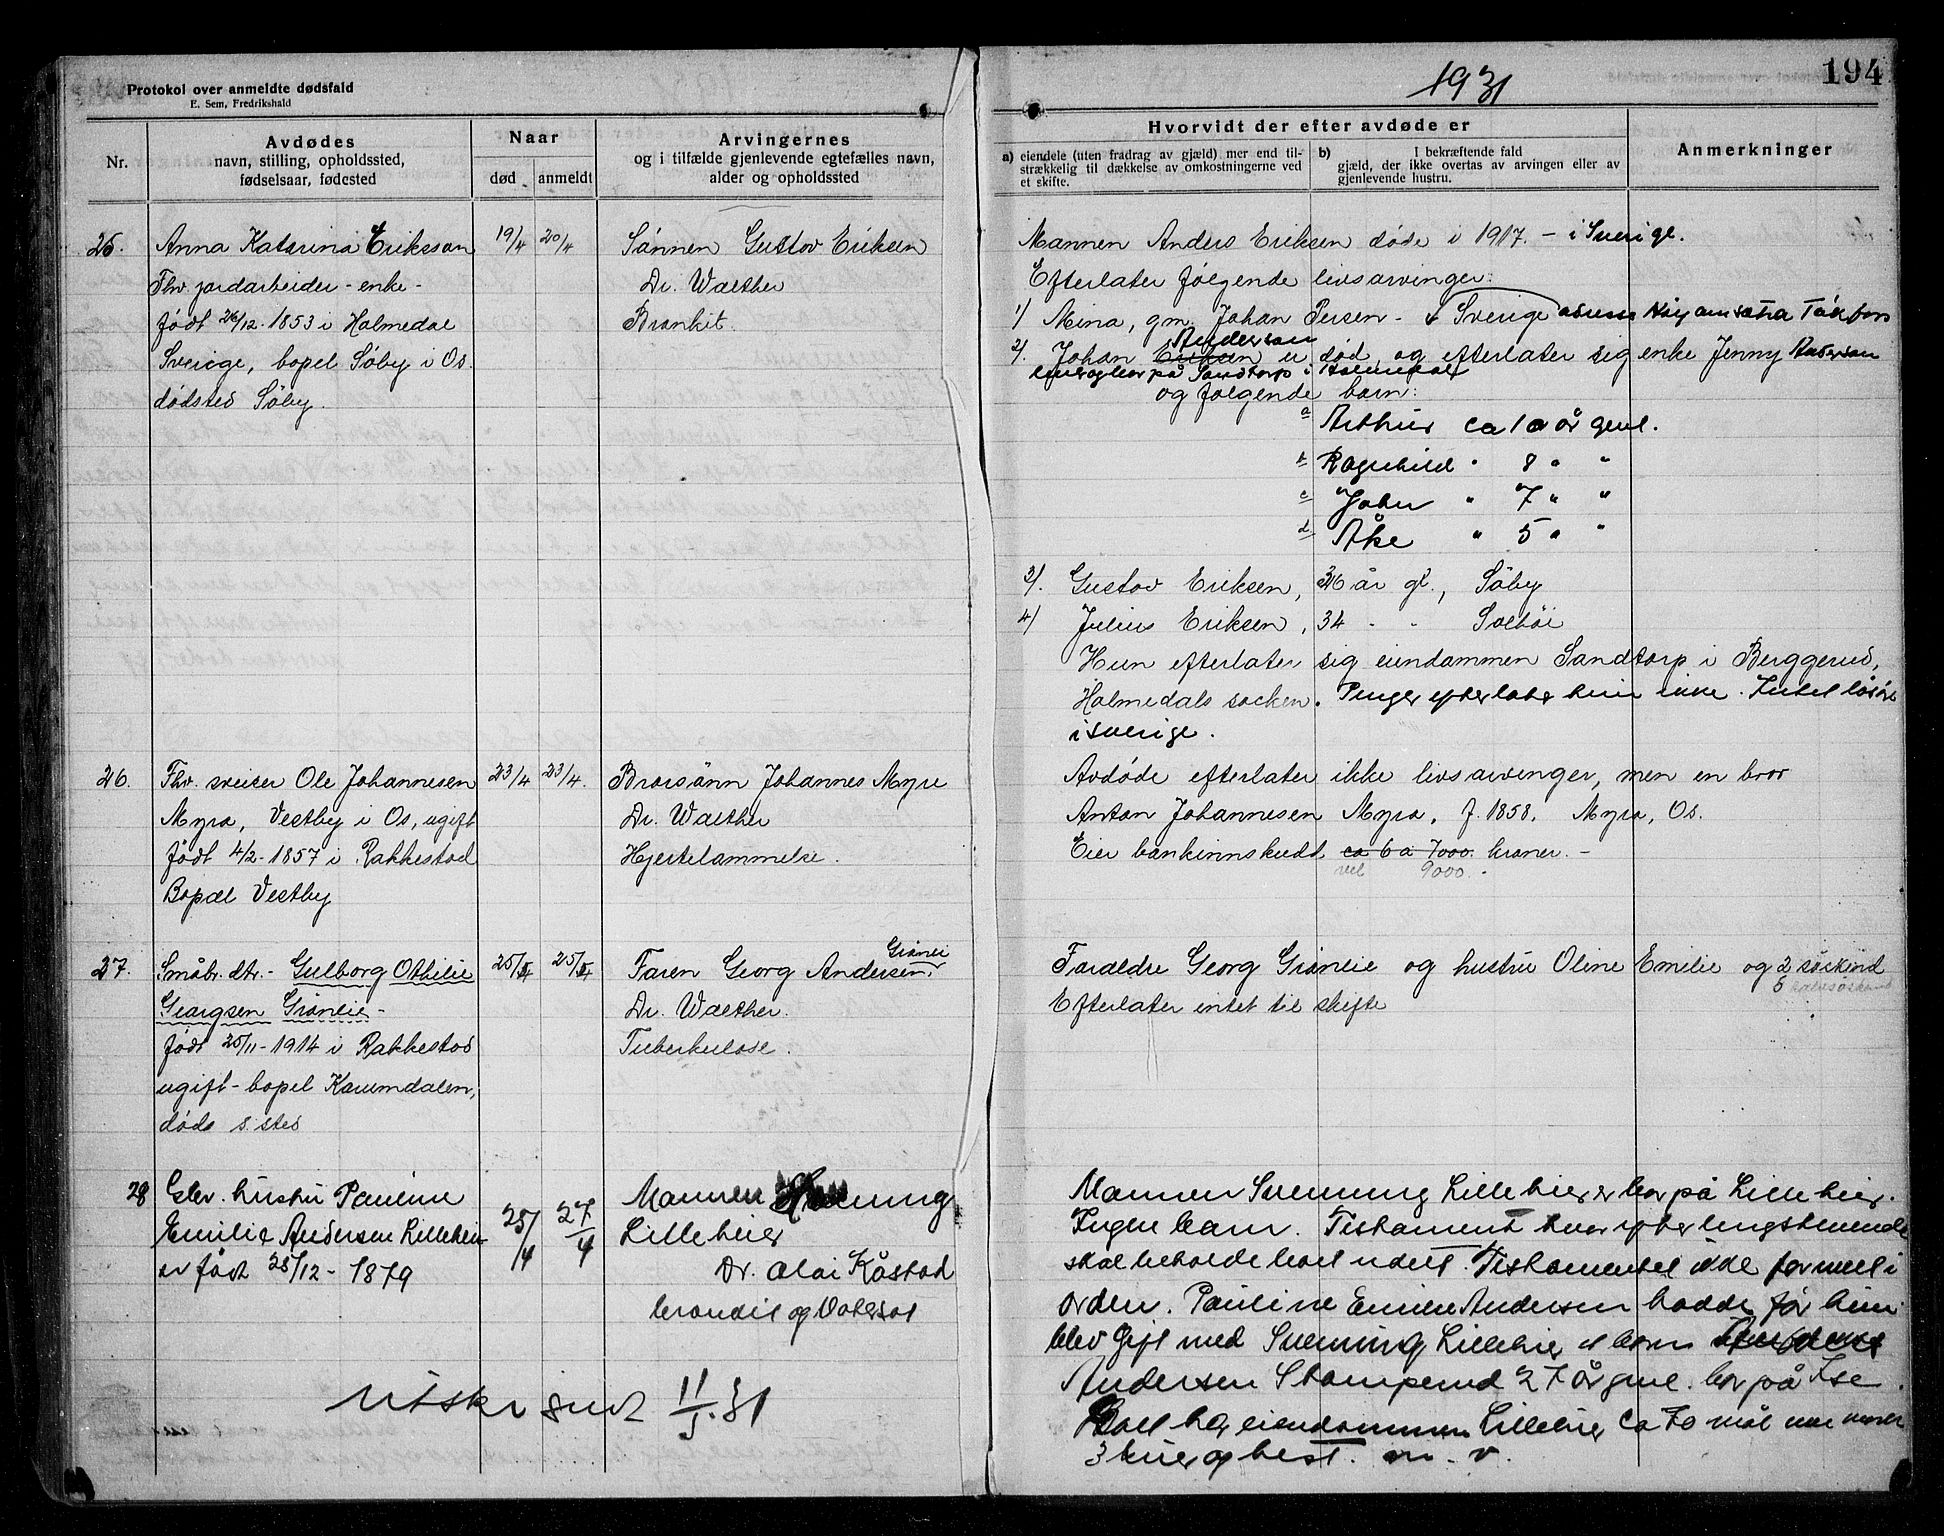 Protokol over anmeldte dødsfald
E. Sem, Fredrikshald
1931
194
Nr.
Avdødes
navn, stilling, opholdssted,
fødselsaar, fødested
Naar
død
anmeldt
Arvingernes
og i tilfælde gjenlevende egtefælles navn,
alder og opholdssted
Hvorvidt der efter avdøde er
a) eiendele (uten fradrag av gjæld) mer end til-
strækkelig til dækkelse av omkostningerne ved
et skifte.
b) I bekræftende fald
gjæld, der ikke overtas av arvingen eller av
gjenlevende hustru.
Anmerkninger
25.
Anna Katarina Eriksson
Fhv. jordarbeider - enke -
født 26/12-1853 i Holmedal
Sverige, bopel Söby i Os
dødsted Söby.
19/4
20/4
Sönnen Gustav Eriksen
Dr. Walther
Bronkit.
Mannen Anders Eriksen døde i 1917. - i Sverige.
Efterlater følgende livsarvinger:
1) Mina, gm. Johan Persen - Sverige adresse
Anderson
2). Johan Eriksen er død, og efterlater sig enke Jenny Anderson
på Sandtorp i Holmedal
og følgende barn:
a Arthur ca 10 år gml.
b Ragnhild " 8 " "
c John " 7 " "
d Åke " 5 " "
3). Gustav Eriksen, 36 år gl., Söby
4) Julius Eriksen, 34 - - Solböi
Hun efterlater sig eiendommen Sandtorp i Berggerud,
Holmedals socken. Penger efterlater hun ikke. Intet løsøre
i Sverige.
26.
Fhv. sveiser Ole Johannesen
Myra, Vestby i Os, ugift
født 4/2-1857 i Rakkestad
Bopæl Vestby
23/4
23/4.
Brorsønn Johannes Myre
Dr. Walther
Hjertelammelse.
Avdøde efterlater ikke livsarvinger, men en bror
Anton Johannesen Myra, f. 1858. Myra, Os.
Eier bankinnskudt ca 6 a 7000. kroner. -
vel 9000. -
27.
Småbr. dtr. - Gulborg Othilie
Georgsen Grönlie -
født 25/11-1914 i Rakkestad
ugift - bopel Kaurmdalen,
døds s. sted
25/4
25/4
Grönli
Faren Georg Andersen.
Dr. Walther.
Tuberkulose.
Foreldre Georg Grönlie og hustru Oline Emilie og 2 søskind
6 halvsøskend
Efterlater intet til skifte
28
Gbr. hustru Pauline
Emilie Andersen Lillebeier
er født 28/12 - 1879
25/4
27/4
Mannen Svenning
Lillebeier
Dr. Olai Kåstad
brondit og Vatersot
Mannen Svenning Lillebeier bor på Lillebeier.
Ingen barn. Testament hvor efterlengstlevende
skal beholde boet udelt. Testamentet ikke formell i
orden. Pauline Emilie Andersen hadde før hun
blev gift med Svenning Lillebeier et barn
Andersen Stomperud 27 år gml. bor på Ise.
Boet har eiendommen Lillebeier ca 70 mål
3 kuer og hest. m. v.
utskr sendt 11/5.31